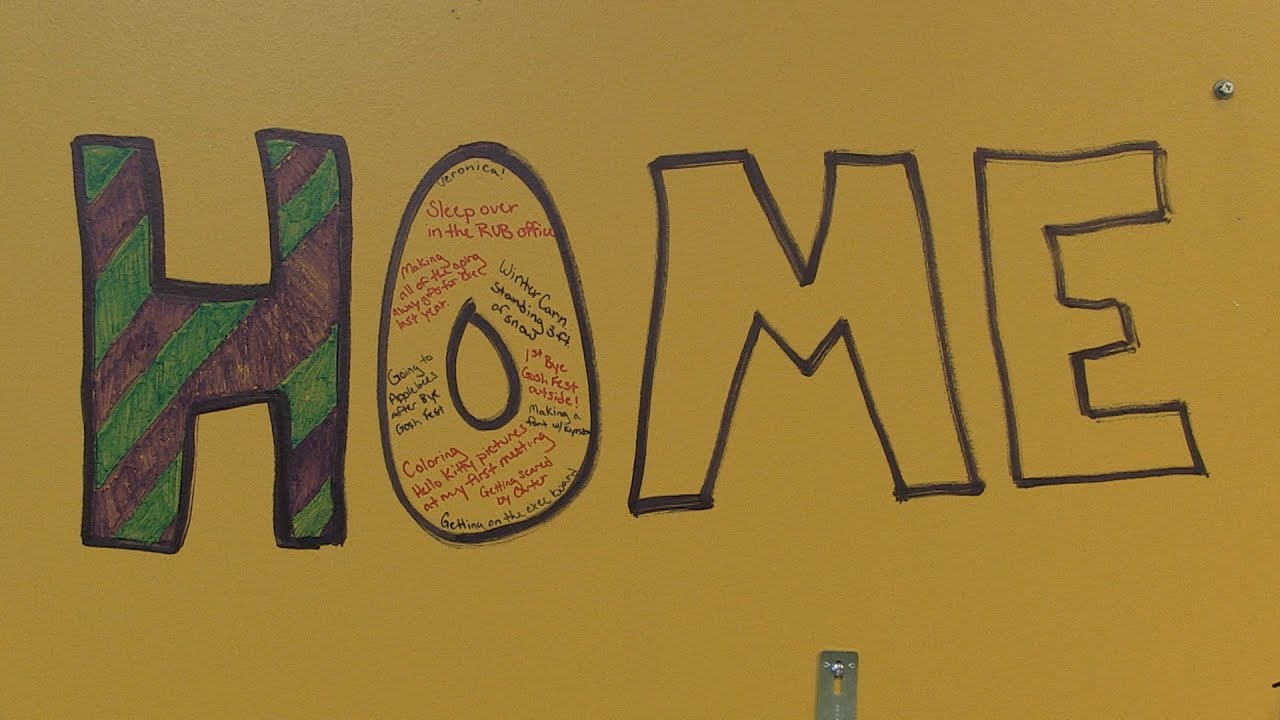 HOME
Veronica!
Sleep over
in the RUB office
Making
all of the going
away gifts for exec
last year.
Winter Carn.
Standing 3ft.
of snow
Going to
Applebees
after Bye
Gosh Fest
1st Bye
Gosh Fest
outside!
Making a
font w/
Coloring
Hello Kitty pictures
at my first meeting
Getting scared
by Carter
Getting on the exec board